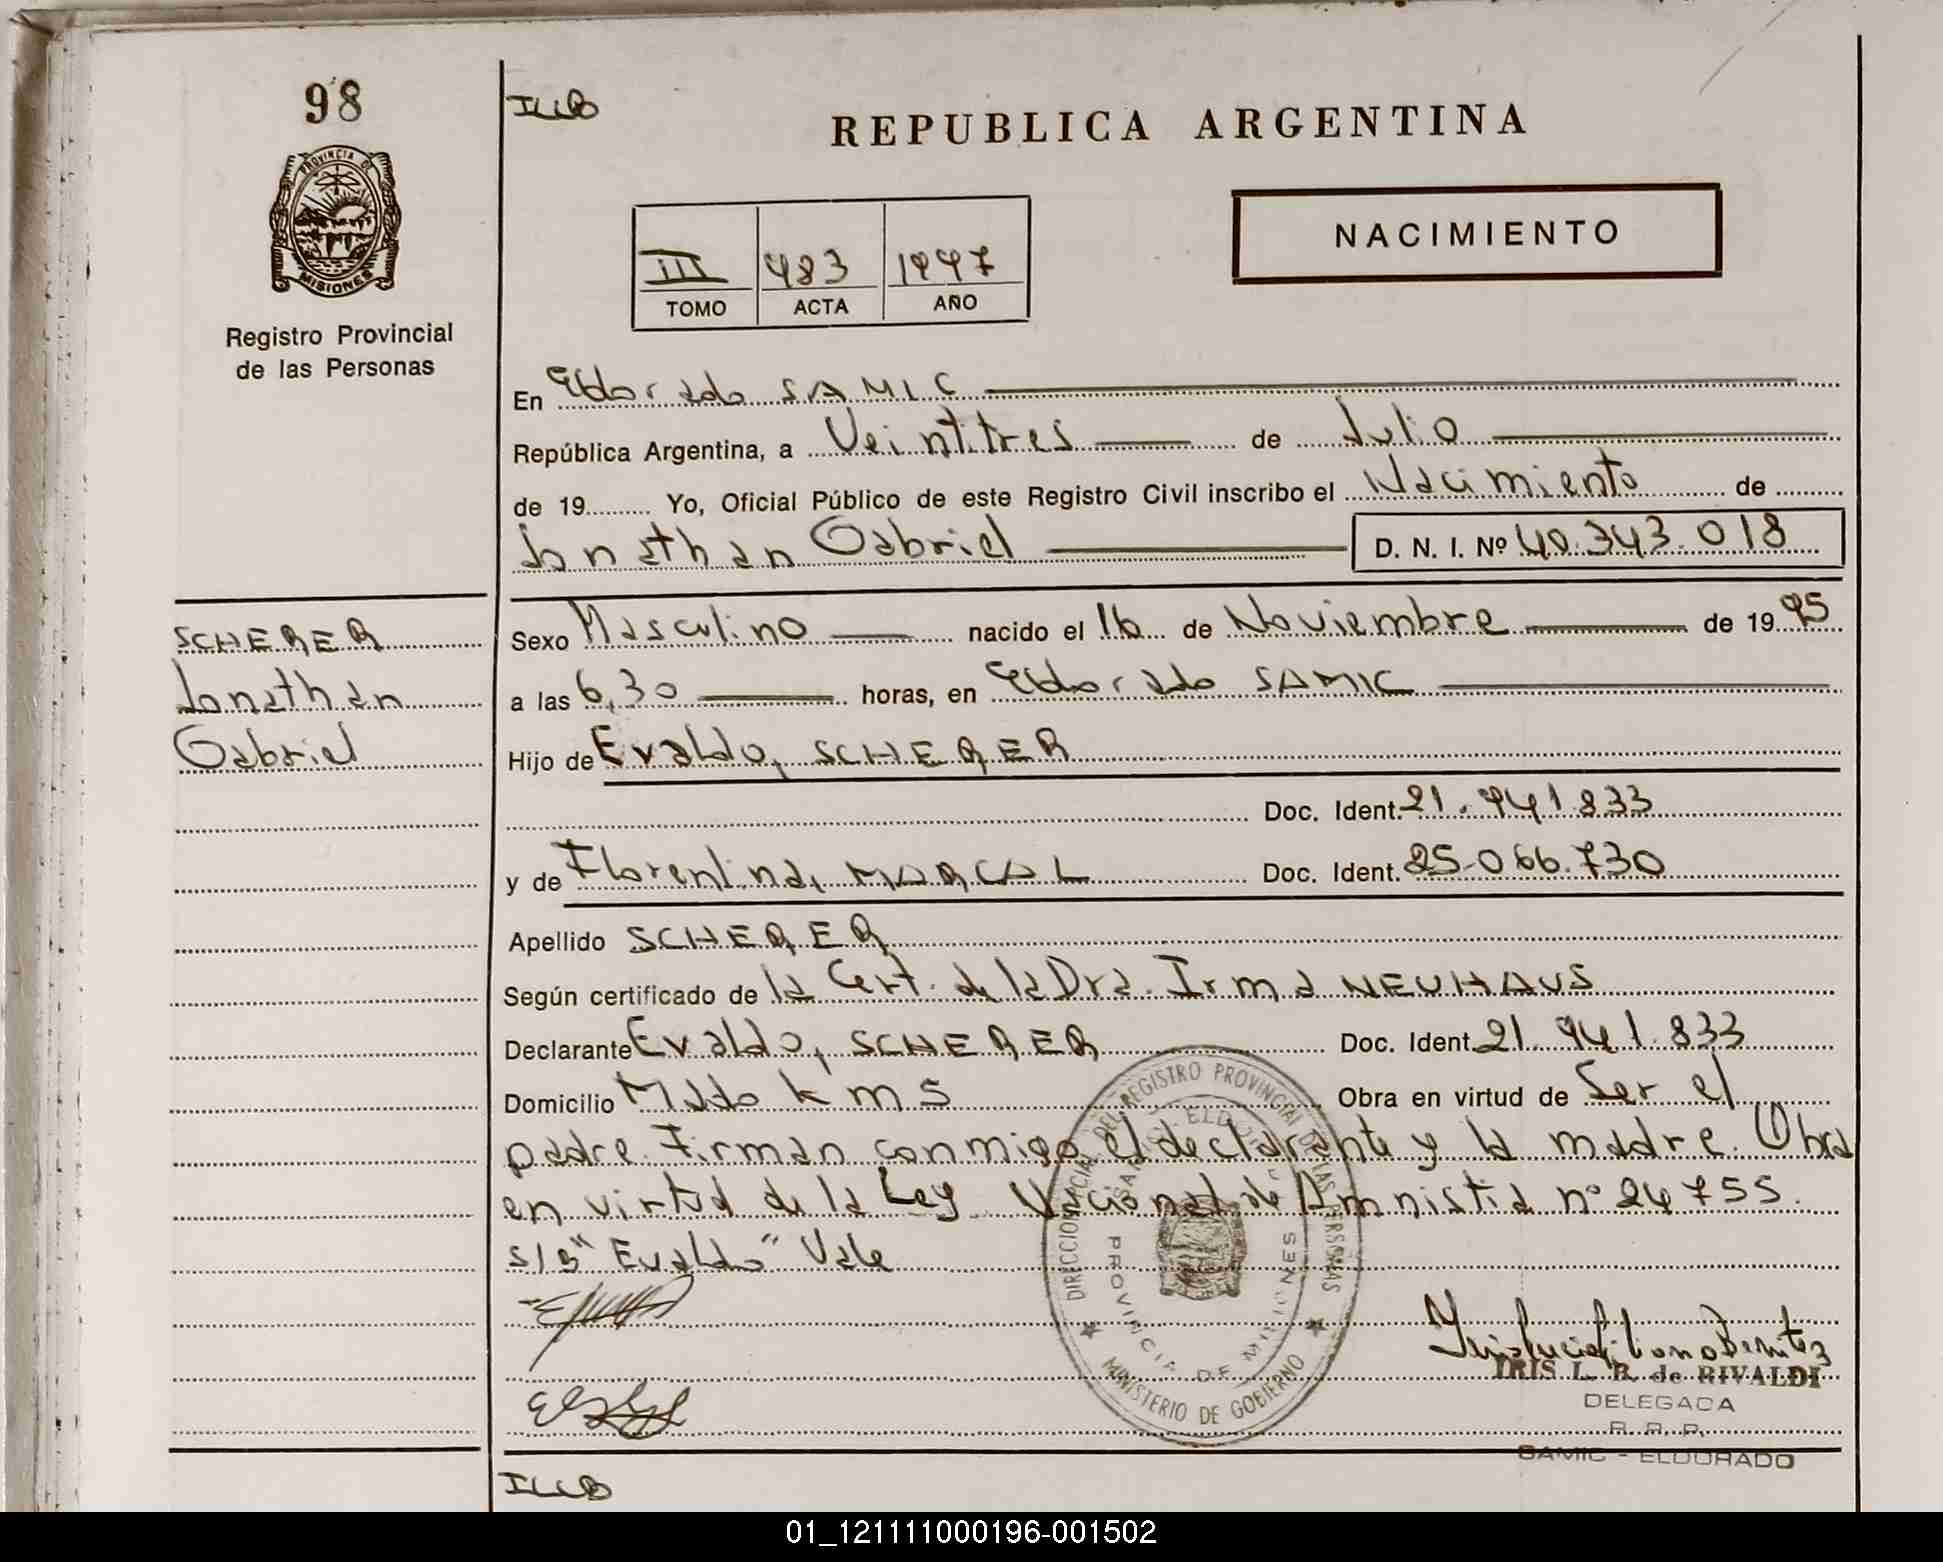 98
ILLB
REPUBLICA ARGENTINA
PROVINCIA DE
MISIONES
Registro Provincial
de las Personas
III 483 1997
TOMO ACTA AÑO
NACIMIENTO
En Eldorado SAMIC
República Argentina, a Veintitres de Julio
de 19 Yo, Oficial Público de este Registro Civil inscribo el Nacimiento de
Jonathan Gabriel D. N. I. Nº 40.343.018
SCHERER
Jonathan
Gabriel
Sexo Masculino nacido el 16 de Noviembre de 1995
a las 6,30 horas, en Eldorado SAMIC
Hijo de Evaldo, SCHERER
Doc. Ident. 21.941.833
y de Florentina, MARCAL Doc. Ident. 25.066.730
Apellido SCHERER
Según certificado de la Cert. de la Dra. Irma NEUHAUS
Declarante Evaldo, SCHERER Doc. Ident. 21.941.833
Domicilio Mado km 5 Obra en virtud de Ser el
padre. Firman conmigo el declarante y la madre. Obra
en virtud de la Ley Nacional de Amnistia nº 24755.
S/B "Evaldo" Vale
DIRECCION PROVINCIAL DEL REGISTRO PROVINCIAL DE LAS PERSONAS
MINISTERIO DE GOBIERNO
PROVINCIA DE MISIONES
IRIS L. B. de RIVALDI
DELEGADA
R. R. P.
SAMIC - ELDORADO
ILLB
01_121111000196-001502